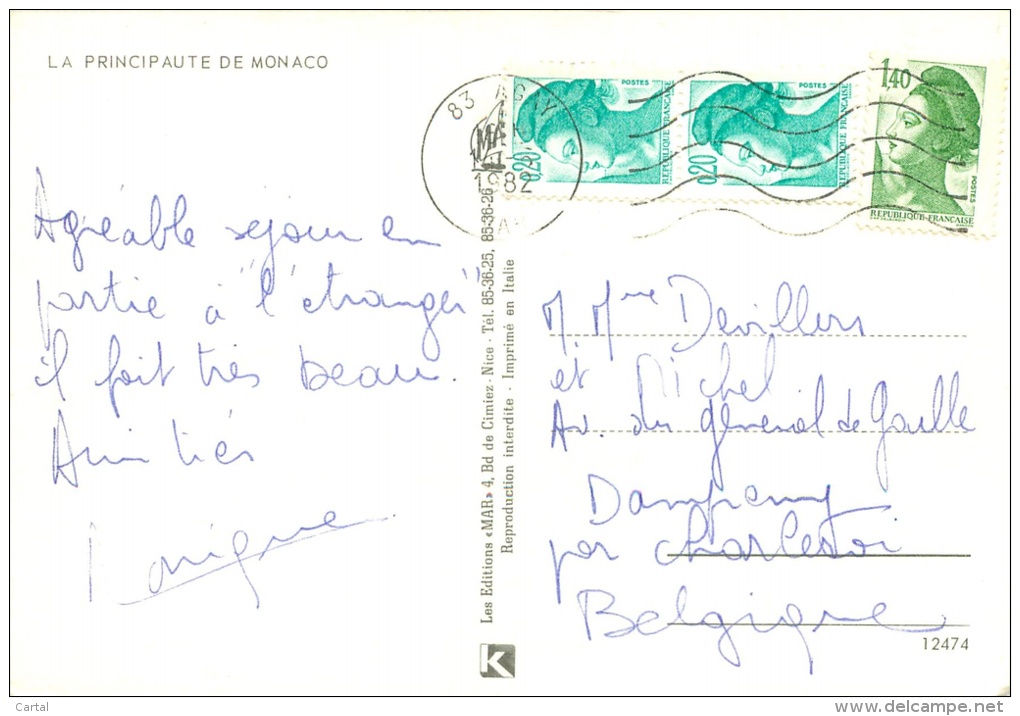 LA PRINCIPAUTE DE MONACO
POSTES
0,20
REPUBLIQUE FRANÇAISE
POSTES
0,20
REPUBLIQUE FRANÇAISE
1,40
POSTES
REPUBLIQUE FRANÇAISE
83
1982
Agréable séjour en
partie à "l'étranger"
il fait très beau.
Amitiés
Monique
Les Editions «MAR» 4, Bd de Cimiez - Nice - Tél. 85-36-25, 85-36-26
Reproduction interdite - Imprimé en Italie
M. Mme Devillers
et Michel
Av. du général de Gaulle
Dampremy
par Charleroi
Belgique
K
12474
Cartal
www.delcampe.net